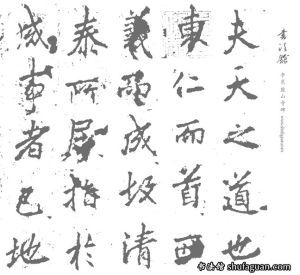 夫天之道也
東仁而首西
義而成故清
泰所居指於
成事者已地
書法館
李邕麓山寺碑
书法馆 shufaguan.com